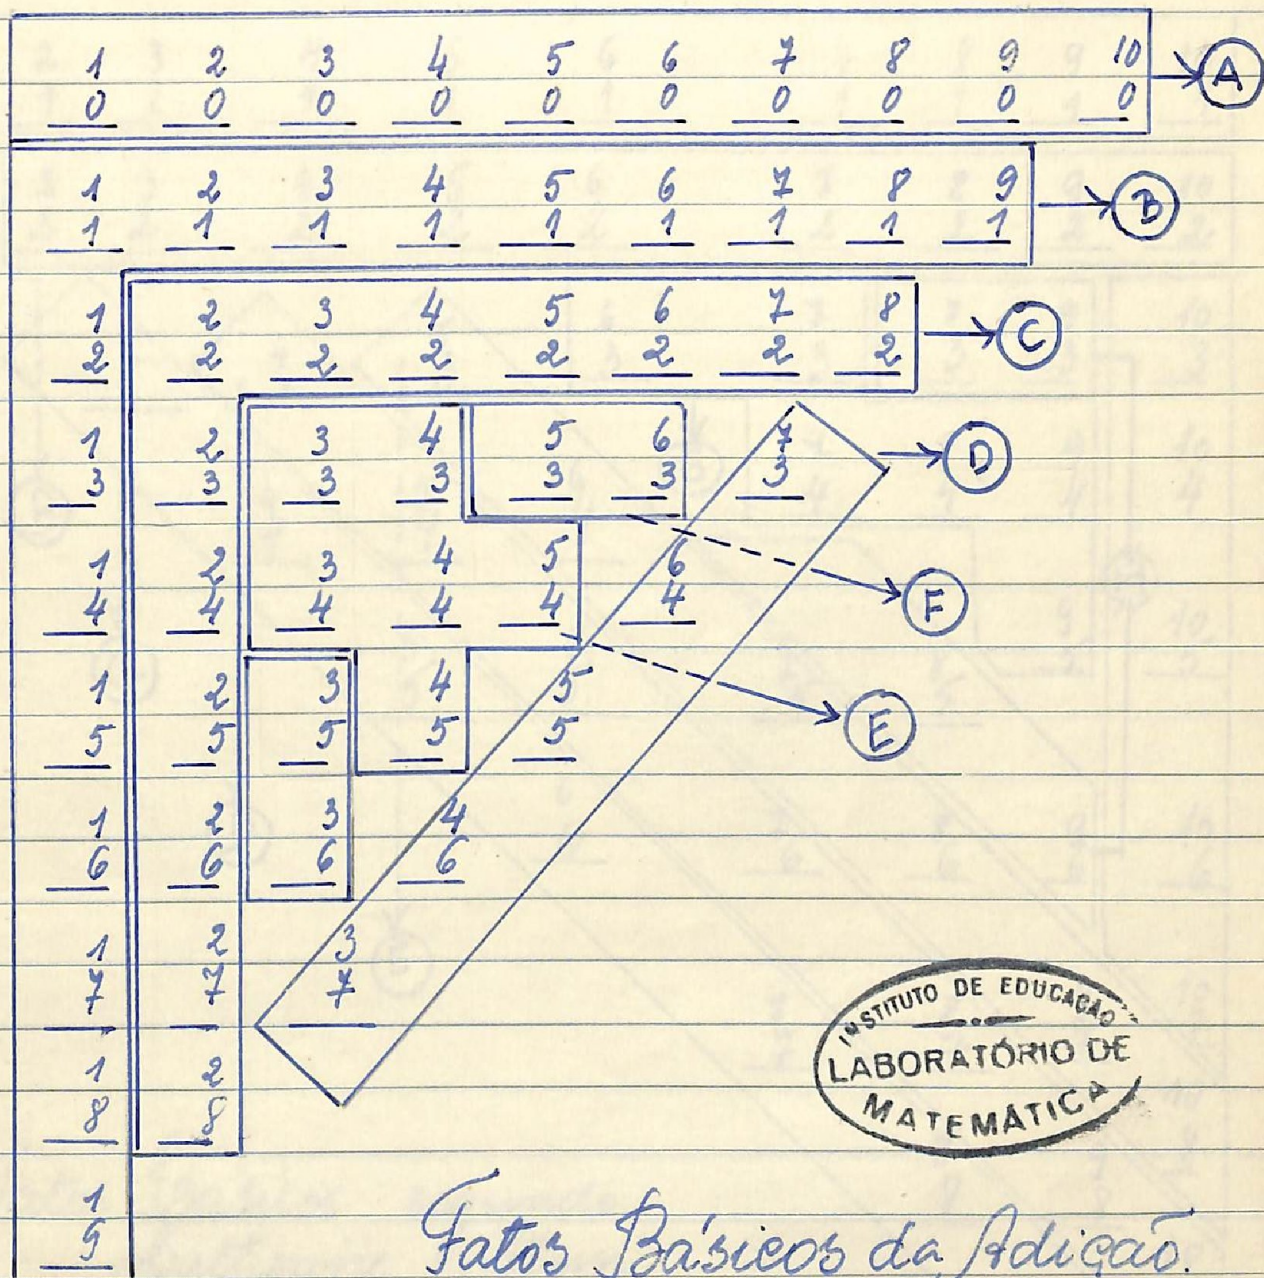 1 2 3 4 5 6 7 8 9 10 A
0 0 0 0 0 0 0 0 0 0
1 2 3 4 5 6 7 8 9 B
1 1 1 1 1 1 1 1 1
1 2 3 4 5 6 7 8 C
2 2 2 2 2 2 2 2
1 2 3 4 5 6 7 D
3 3 3 3 3 3 3
1 2 3 4 5 6 F
4 4 4 4 4 4
1 2 3 4 5 E
5 5 5 5 5
1 2 3 4
6 6 6 6
1 2 3
7 7 7
1 2
8 8
1
9
INSTITUTO DE EDUCAÇÃO
LABORATÓRIO DE
MATEMÁTICA
Fatos Básicos da Adição.